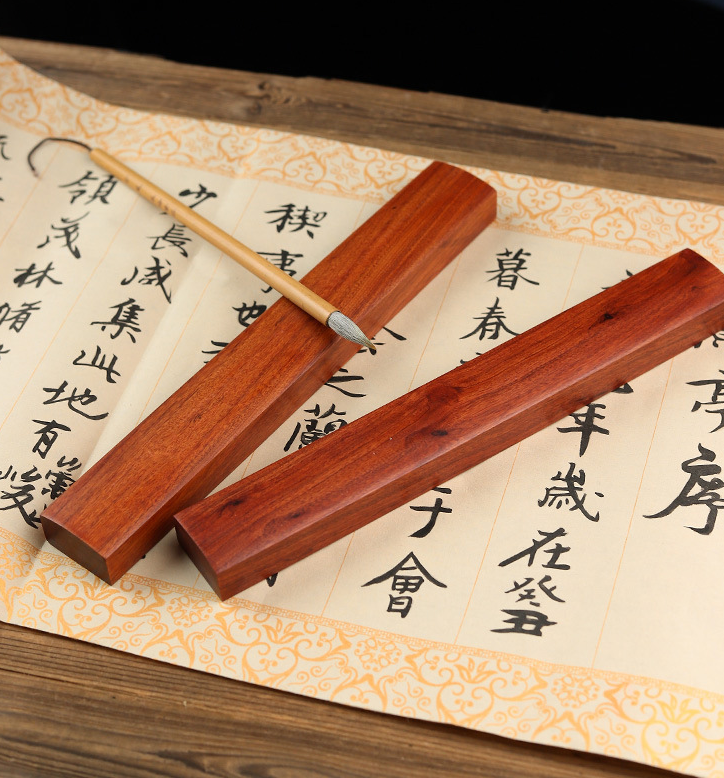 亭序
年歲在癸丑
暮春于會
之蘭
禊事也
少長咸集此地有崇山峻
領茂林脩